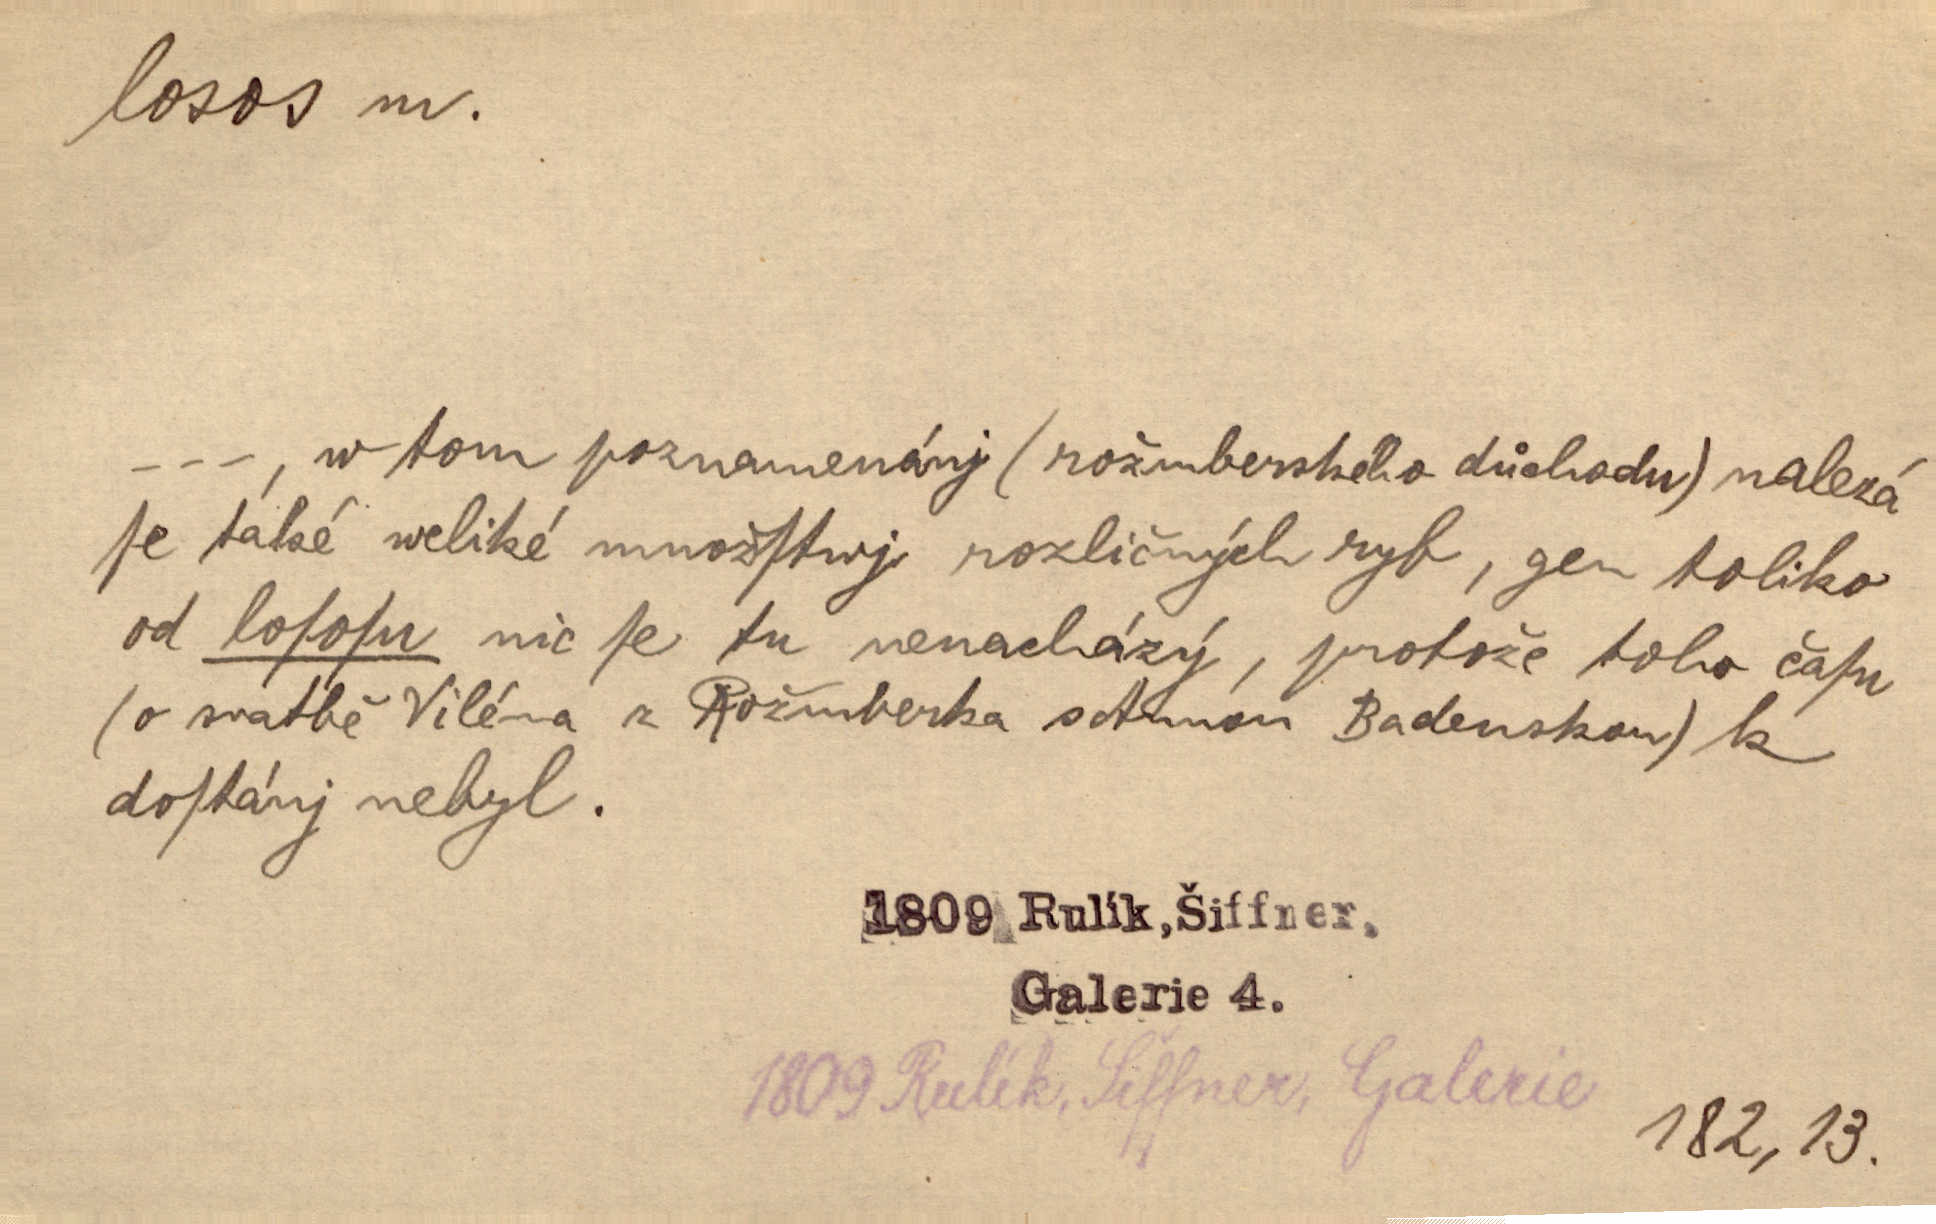 losos m.
---, w tom poznamenánj (rožmberského důchodu) nalezá
ſe také weliké množſtwj rozličných ryb, gen toliko
od loſoſu nic ſe tu nenacházý, protože toho čaſu
(o svatbě Viléma z Rožmberka s Annou Badenskou) k
doſtánj nebyl.
1809 Rulík, Šiffner,
Galerie 4.
1809 Rulík, Šiffner, Galerie
182, 13.